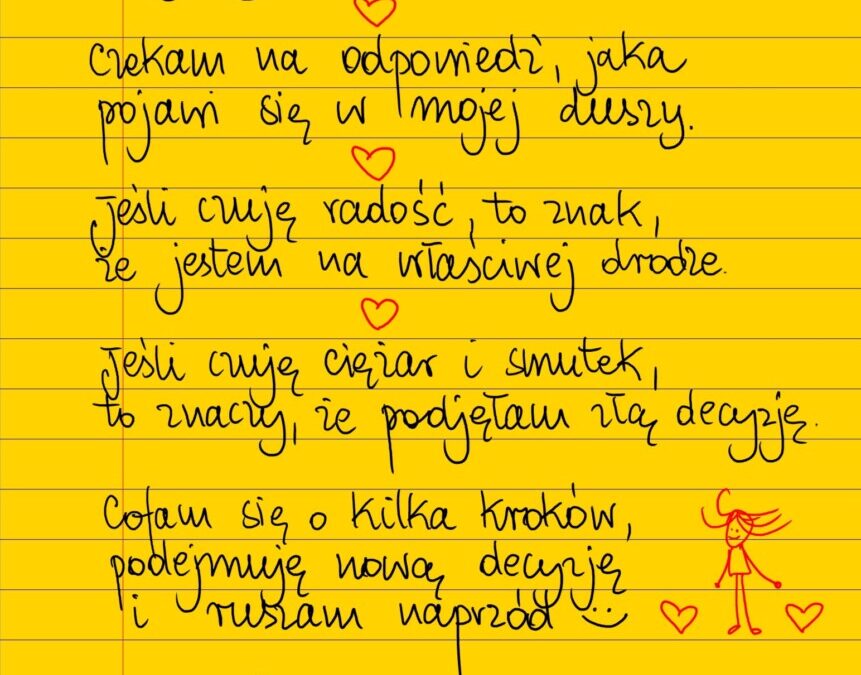 czekam na odpowiedź, jaka
pojawi się w mojej duszy.
Jeśli czuję radość, to znak,
że jestem na właściwej drodze.
Jeśli czuję ciężar i smutek,
to znaczy, że podjęłam złą decyzję.
Cofam się o kilka kroków,
podejmuję nową decyzję
i ruszam naprzód :)